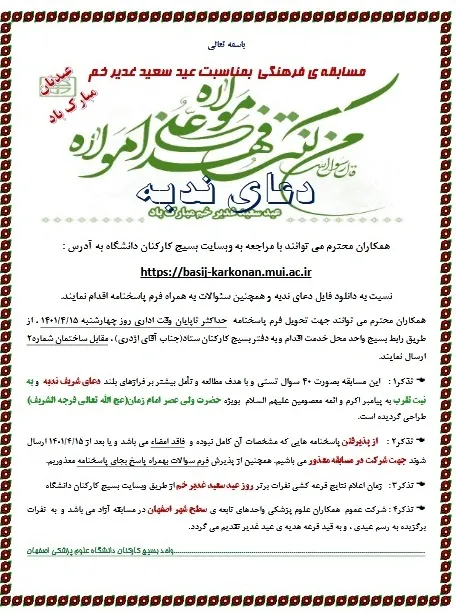 باسمه تعالی
مسابقه ی فرهنگی بمناسبت عید سعید غدیر خم
عیدتان
مبارک باد
قال رسول الله
من کنت مولاه فهذا علی مولاه
دعای ندبه
عید سعید غدیر خم مبارک باد
همکاران محترم می توانند با مراجعه به وبسایت بسیج کارکنان دانشگاه به آدرس :
https://basij-karkonan.mui.ac.ir
نسبت به دانلود فایل دعای ندبه و همچنین سئوالات به همراه فرم پاسخنامه اقدام نمایند.
همکاران محترم می توانند جهت تحویل فرم پاسخنامه حداکثر تاپایان وقت اداری روز چهارشنبه ۱۴۰۱/۴/۱۵ ، از
طریق رابط بسیج واحد محل خدمت اقدام و به دفتر بسیج کارکنان ستاد(جناب آقای اژدری) ، مقابل ساختمان شماره۲
ارسال نمایند.
تذکر۱: این مسابقه بصورت ۴۰ سوال تستی و با هدف مطالعه و تأمل بیشتر بر فرازهای بلند دعای شریف ندبه و به
نیت تقرب به پیامبر اکرم و ائمه معصومین علیهم السلام بویژه حضرت ولی عصر امام زمان(عج الله تعالی فرجه الشریف)
طراحی گردیده است.
تذکر۲: از پذیرفتن پاسخنامه هایی که مشخصات آن کامل نبوده و فاقد امضاء می باشد و یا بعد از ۱۴۰۱/۴/۱۵ ارسال
شوند جهت شرکت در مسابقه معذور می باشیم. همچنین از پذیرش فرم سوالات بهمراه پاسخ بجای پاسخنامه معذوریم.
تذکر۳: زمان اعلام نتایج قرعه کشی نفرات برتر روز عید سعید غدیر خم از طریق وبسایت بسیج کارکنان دانشگاه
تذکر۴: شرکت عموم همکاران علوم پزشکی واحدهای تابعه ی سطح شهر اصفهان در مسابقه آزاد می باشد و به نفرات
برگزیده به رسم عیدی ، و به قید قرعه هدیه ی عید غدیر تقدیم می گردد.
واحد بسیج کارکنان دانشگاه علوم پزشکی اصفهان